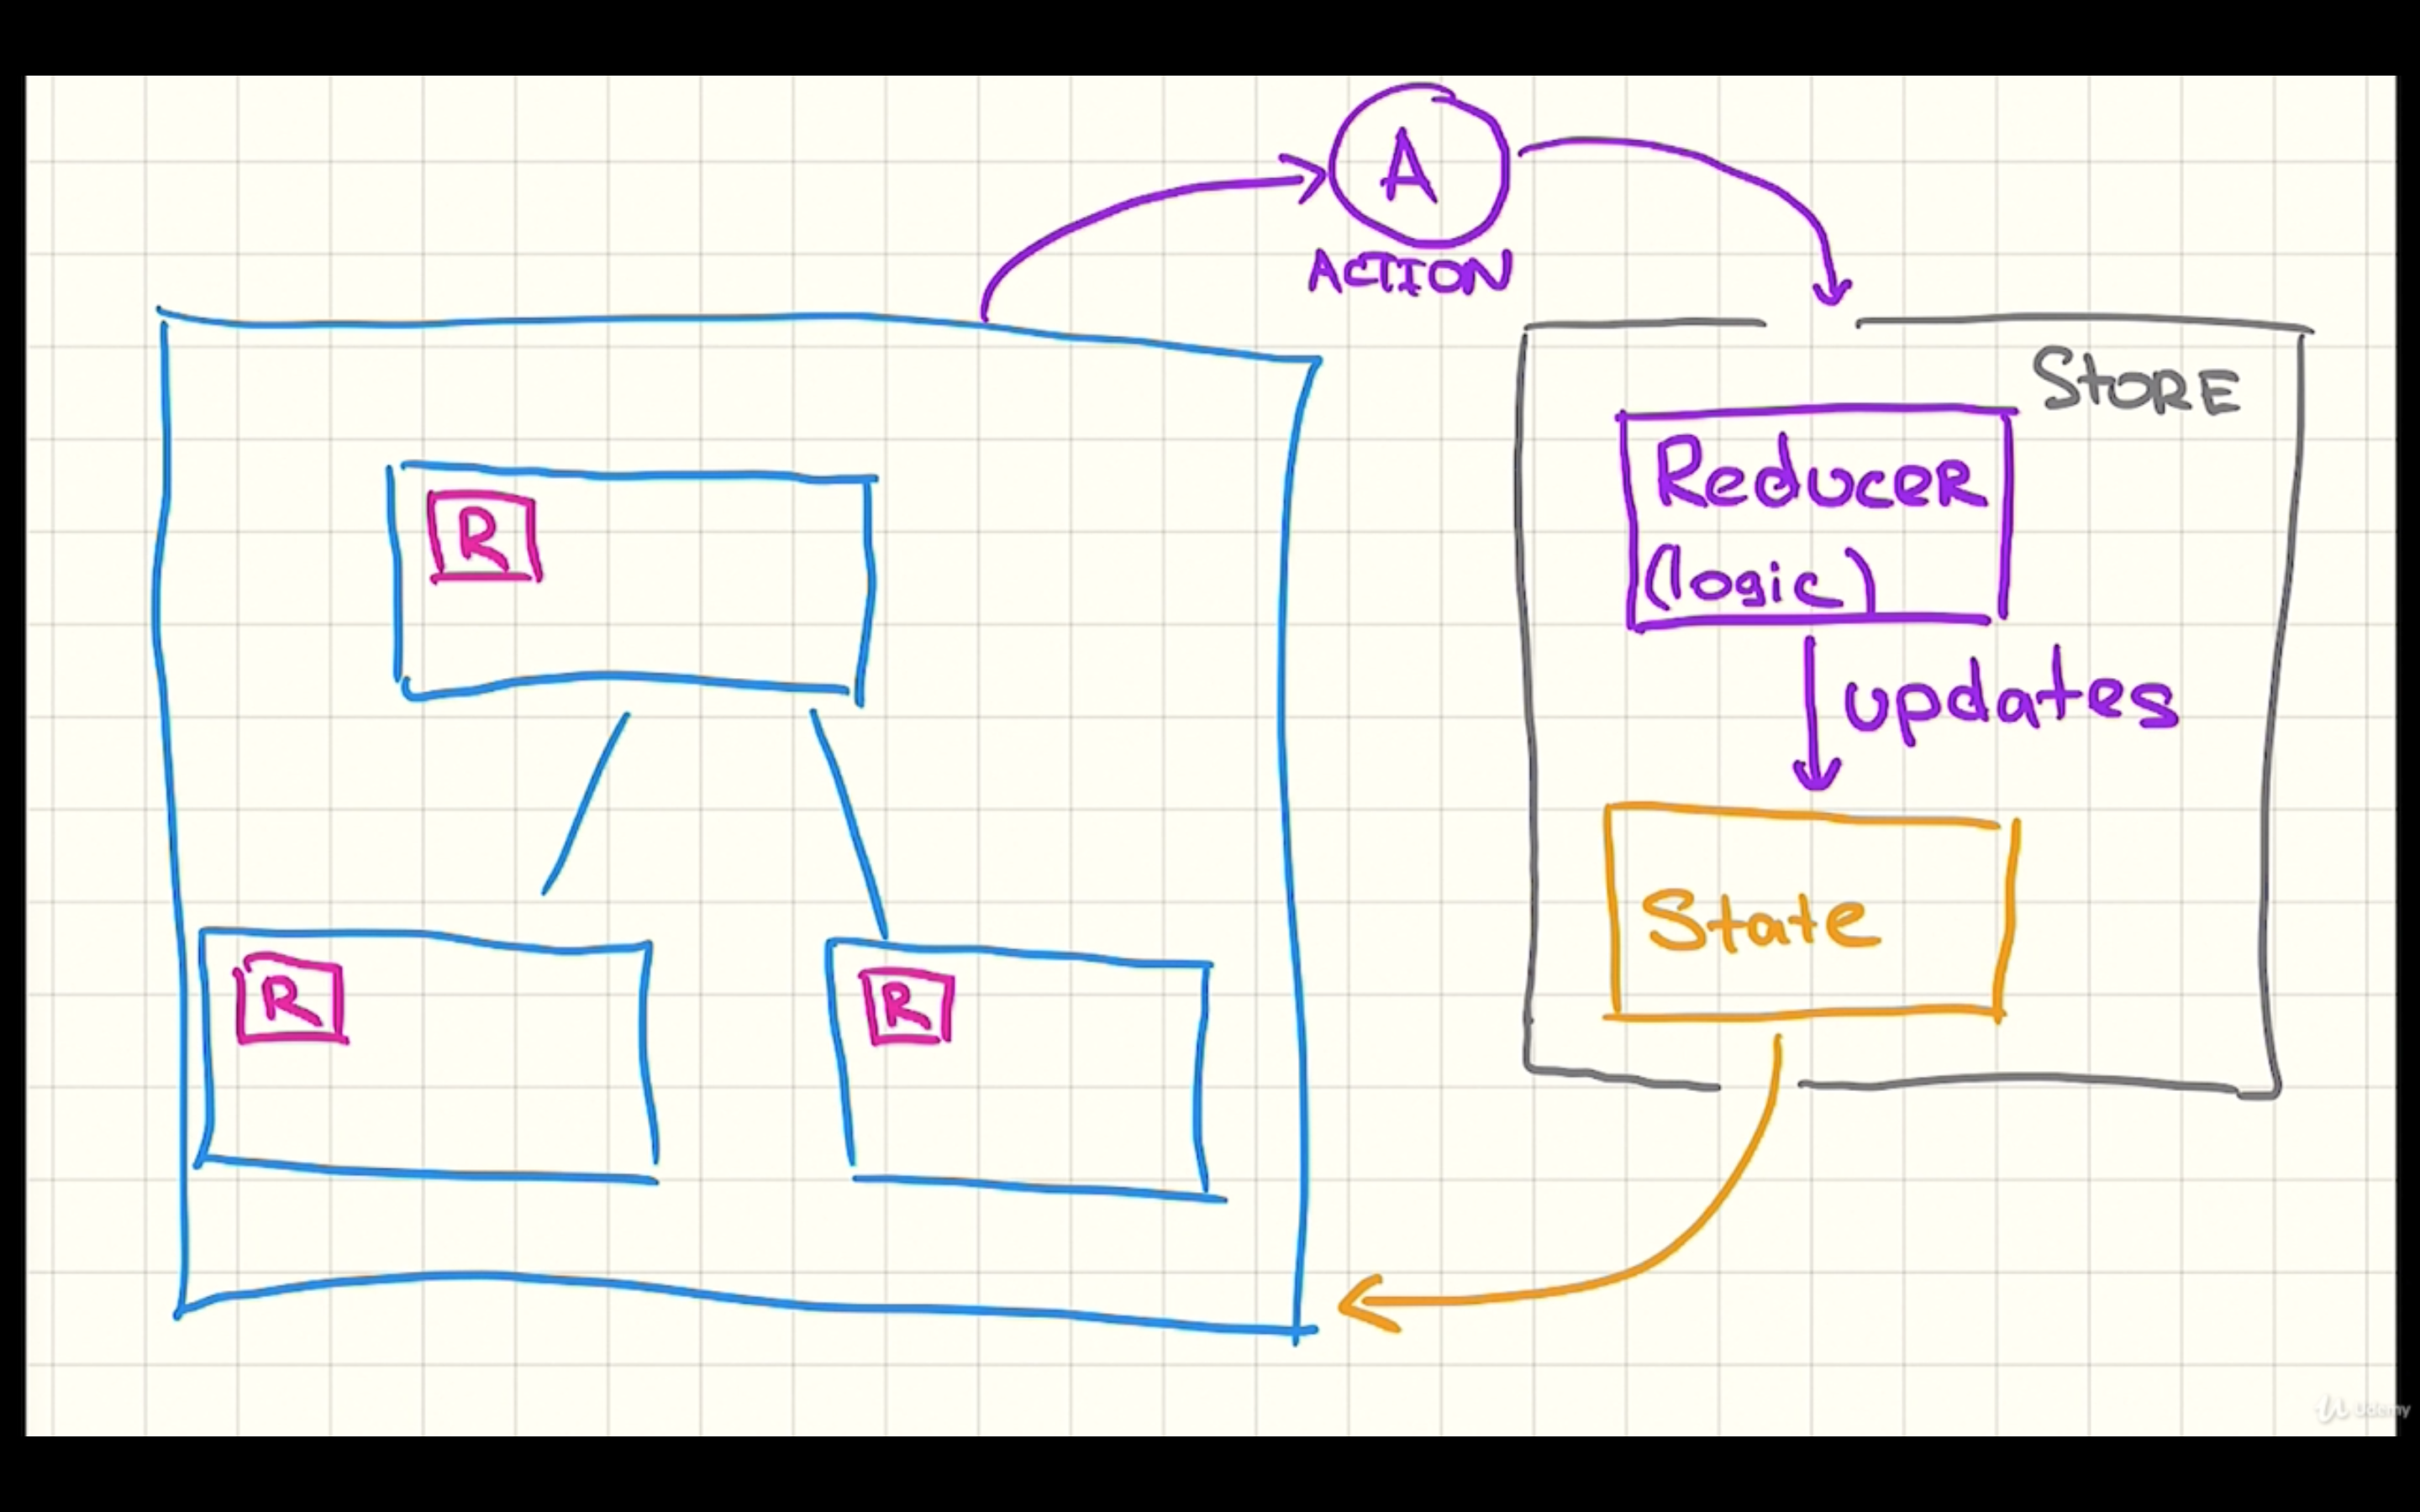 A
ACTION
STORE
R
Reducer
(logic)
updates
State
R
R
Udemy